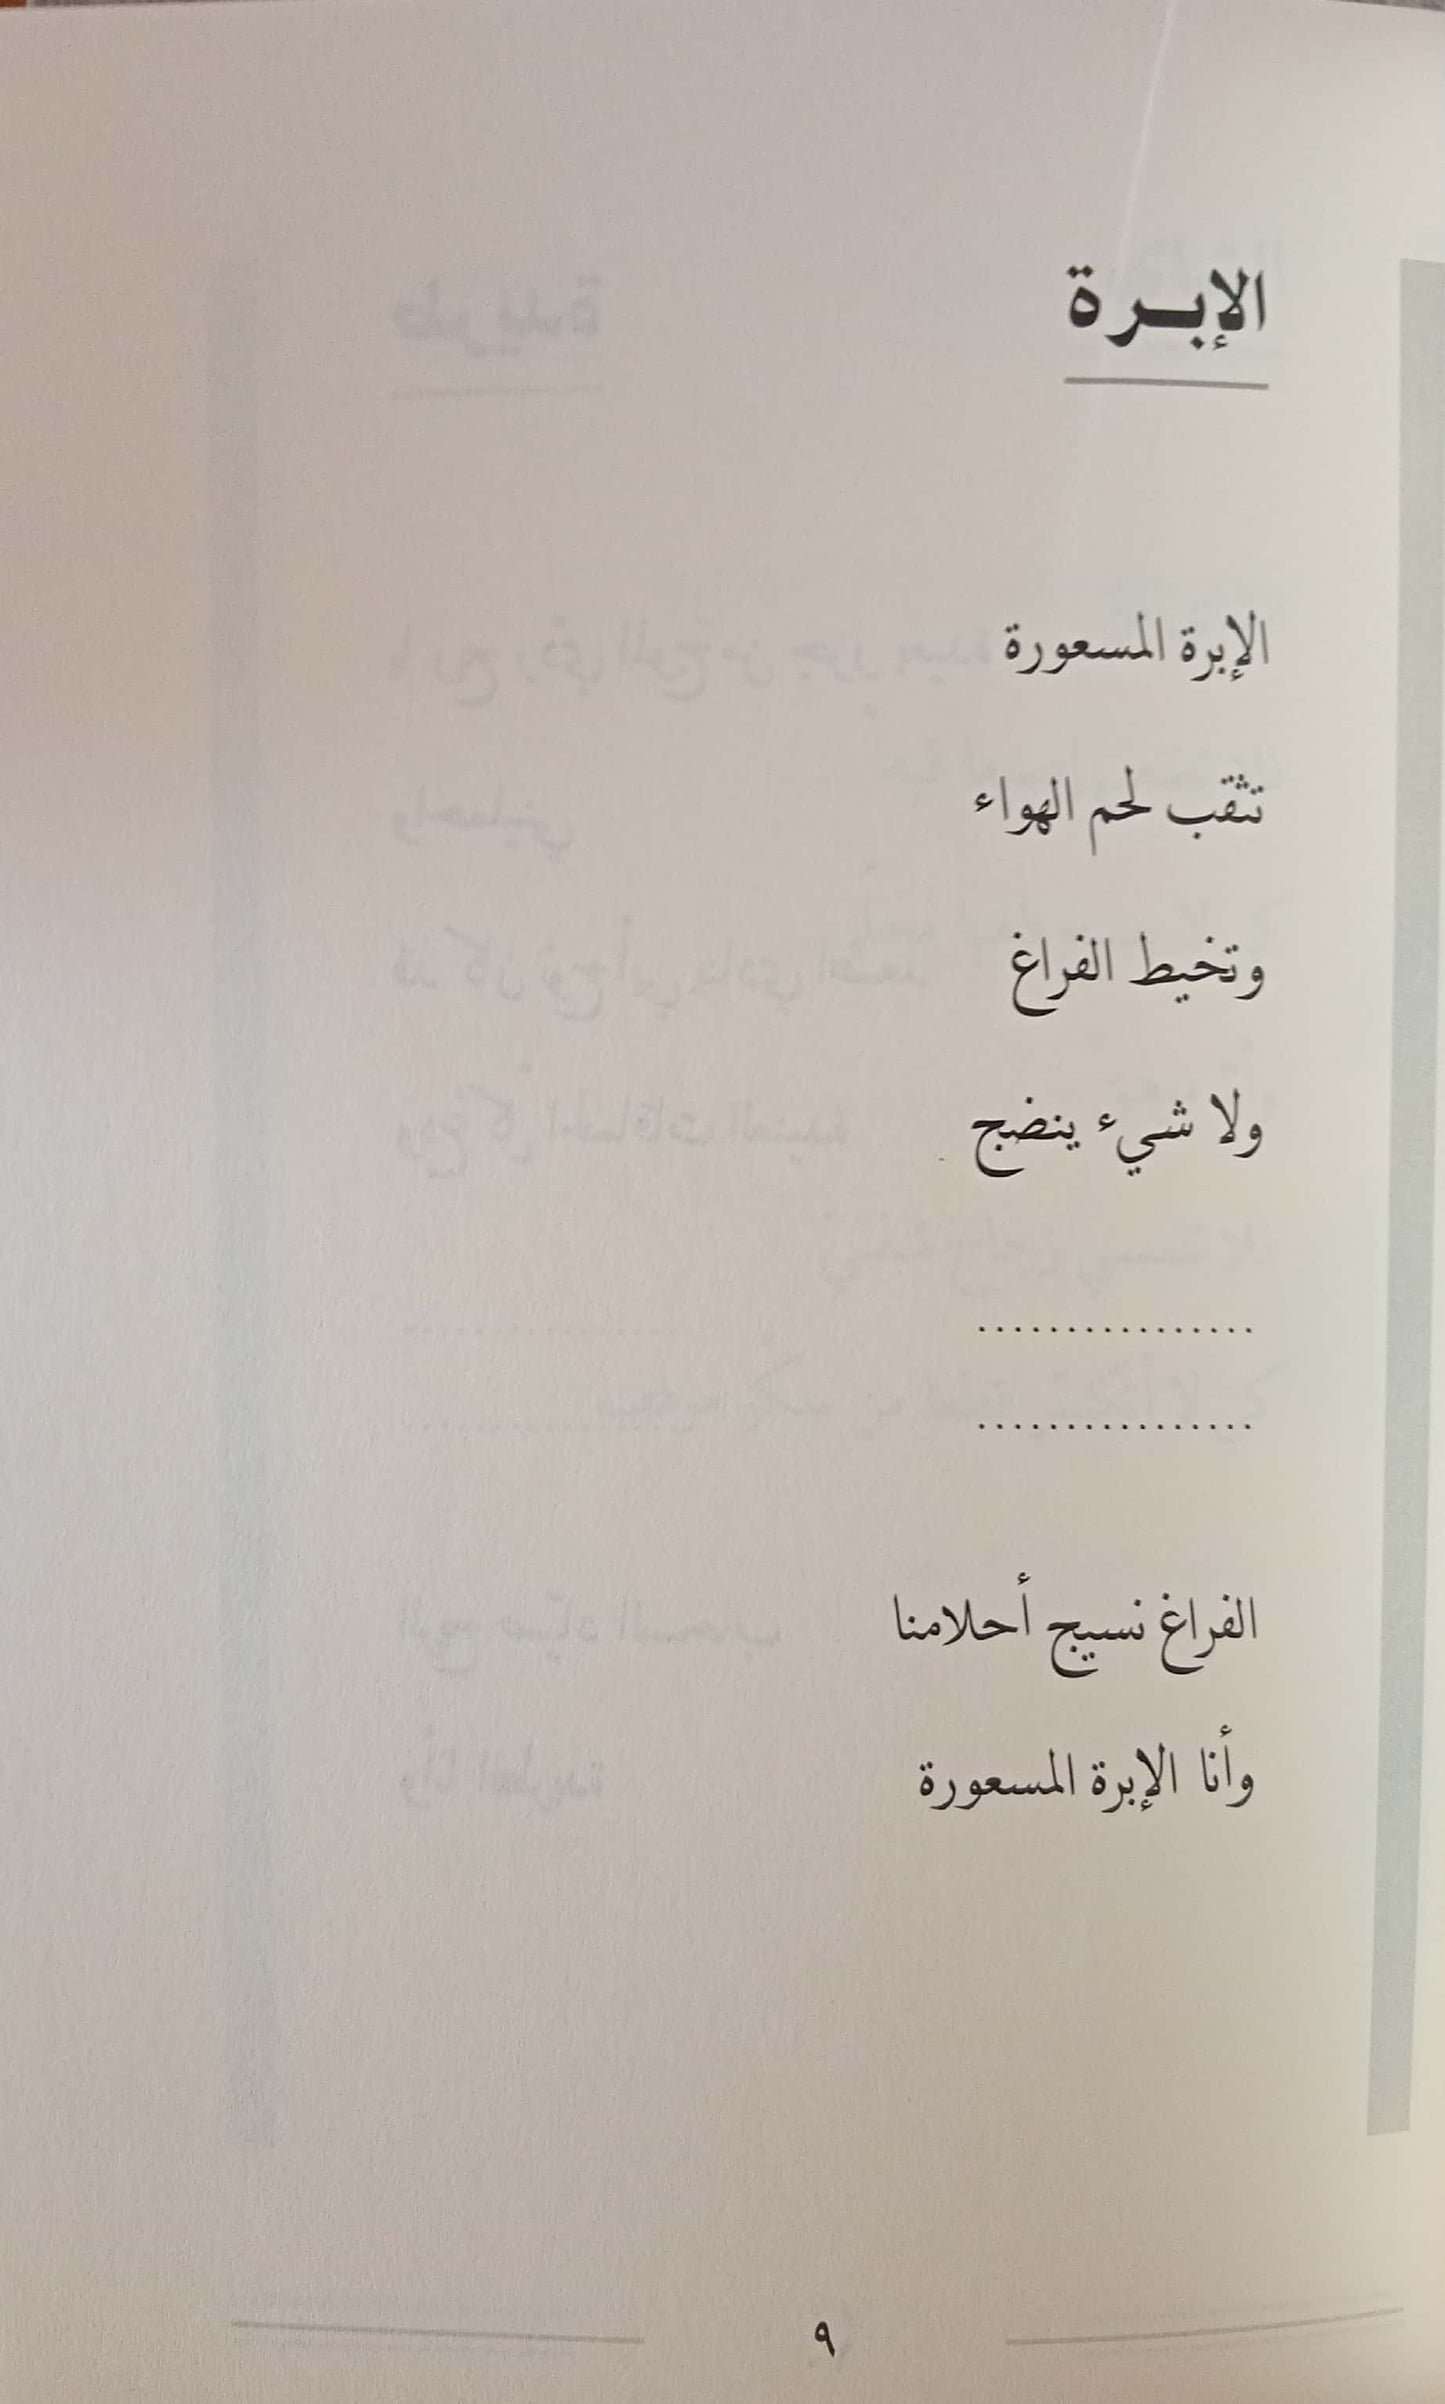 الإبرة
الإبرة المسعورة
تثقب لحم الهواء
وتخيط الفراغ
ولا شيء ينضج
................
................
الفراغ نسيج أحلامنا
وأنا الإبرة المسعورة
٩